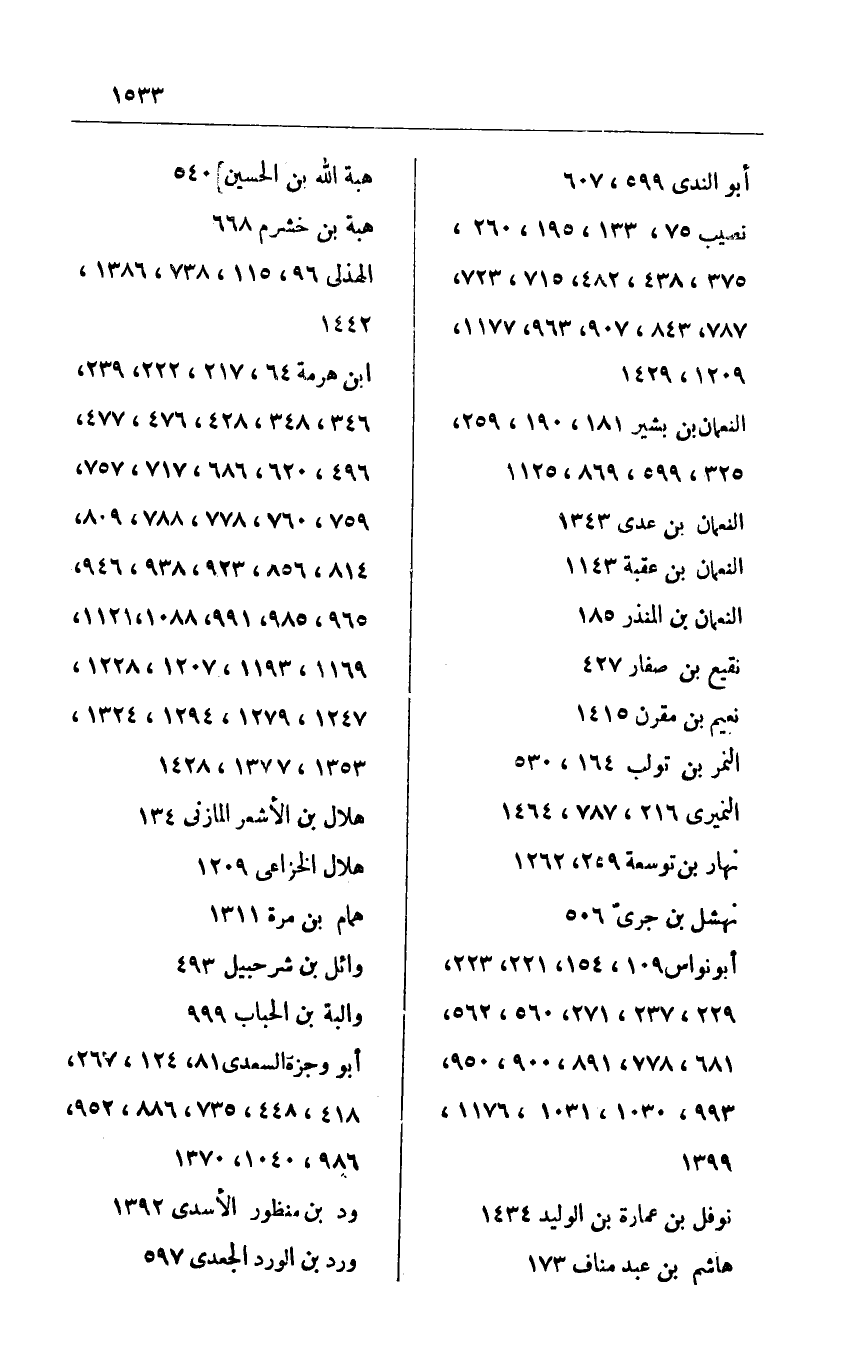 ١٥٣٣
أبو الندى ٥٩٩ ، ٦٠٧
نصيب ٧٥ ، ١٣٣ ، ١٩٥ ، ٢٦٠ ،
٣٧٥ ، ٤٣٨ ، ٤٨٢، ٧١٥ ، ٧٢٣،
٧٨٧، ٨٤٣ ، ٩٠٧، ٩٦٣، ١١٧٧،
١٢٠٩ ، ١٤٢٩
النعمان بن بشير ١٨١ ، ١٩٠ ، ٢٥٩،
٣٢٥ ، ٥٩٩ ، ٨٦٩ ، ١١٢٥
النعمان بن عدى ١٣٤٣
النعمان بن عقبة ١١٤٣
النعمان بن المنذر ١٨٥
نقيع بن صفار ٤٢٧
نعيم بن مقرن ١٤١٥
النمر بن تولب ١٦٤ ، ٥٣٠
النميرى ٢١٦ ، ٧٨٧ ، ١٤٦٤
نهار بن توسعة ٢٥٩، ١٢٦٢
نهشل بن جرىّ ٥٠٦
أبو نواس ١٠٩ ، ١٥٤، ٢٢١، ٢٢٣،
٢٢٩ ، ٢٣٧ ، ٢٧١، ٥٦٠ ، ٥٦٢،
٦٨١ ، ٧٧٨، ٨٩١ ، ٩٠٠ ، ٩٥٠،
٩٩٣ ، ١٠٣٠ ، ١٠٣١ ، ١١٧٦ ،
١٣٩٩
نوفل بن عمارة بن الوليد ١٤٣٤
هاشم بن عبد مناف ١٧٣
هبة الله بن الحسين] ٥٤٠
هبة بن خشرم ٦٦٨
الهذلى ٩٦، ١١٥ ، ٧٣٨ ، ١٣٨٦ ،
١٤٤٢
ابن هرمة ٦٤ ، ٢١٧ ، ٢٢٢ ، ٢٣٩،
٣٤٦ ، ٣٤٨ ، ٤٢٨ ، ٤٧٦ ، ٤٧٧،
٤٩٦ ، ٦٢٠ ، ٦٨٦ ، ٧١٧ ، ٧٥٧،
٧٥٩ ، ٧٦٠ ، ٧٧٨ ، ٧٨٨ ، ٨٠٩،
٨١٤ ، ٨٥٦ ، ٩٢٣ ، ٩٣٨ ، ٩٤٦،
٩٦٥ ، ٩٨٥، ٩٩١، ١٠٨٨، ١١٢١،
١١٦٩ ، ١١٩٣ ، ١٢٠٧ ، ١٢٢٨ ،
١٢٤٧ ، ١٢٧٩ ، ١٢٩٤ ، ١٣٢٤ ،
١٣٥٣ ، ١٣٧٧ ، ١٤٢٨
هلال بن الأشعر المازنى ١٣٤
هلال الخزاعى ١٢٠٩
همام بن مرة ١٣١١
وائل بن شرحبيل ٤٩٣
والبة بن الحباب ٩٩٩
أبو وجزة السعدى ٨١، ١٢٤ ، ٢٦٧،
٤١٨ ، ٤٤٨ ، ٧٣٥ ، ٨٨٦ ، ٩٥٢،
٩٨٦ ، ١٠٤٠، ١٣٧٠
ود بن منظور الأسدى ١٣٩٢
ورد بن الورد الجعدى ٥٩٧